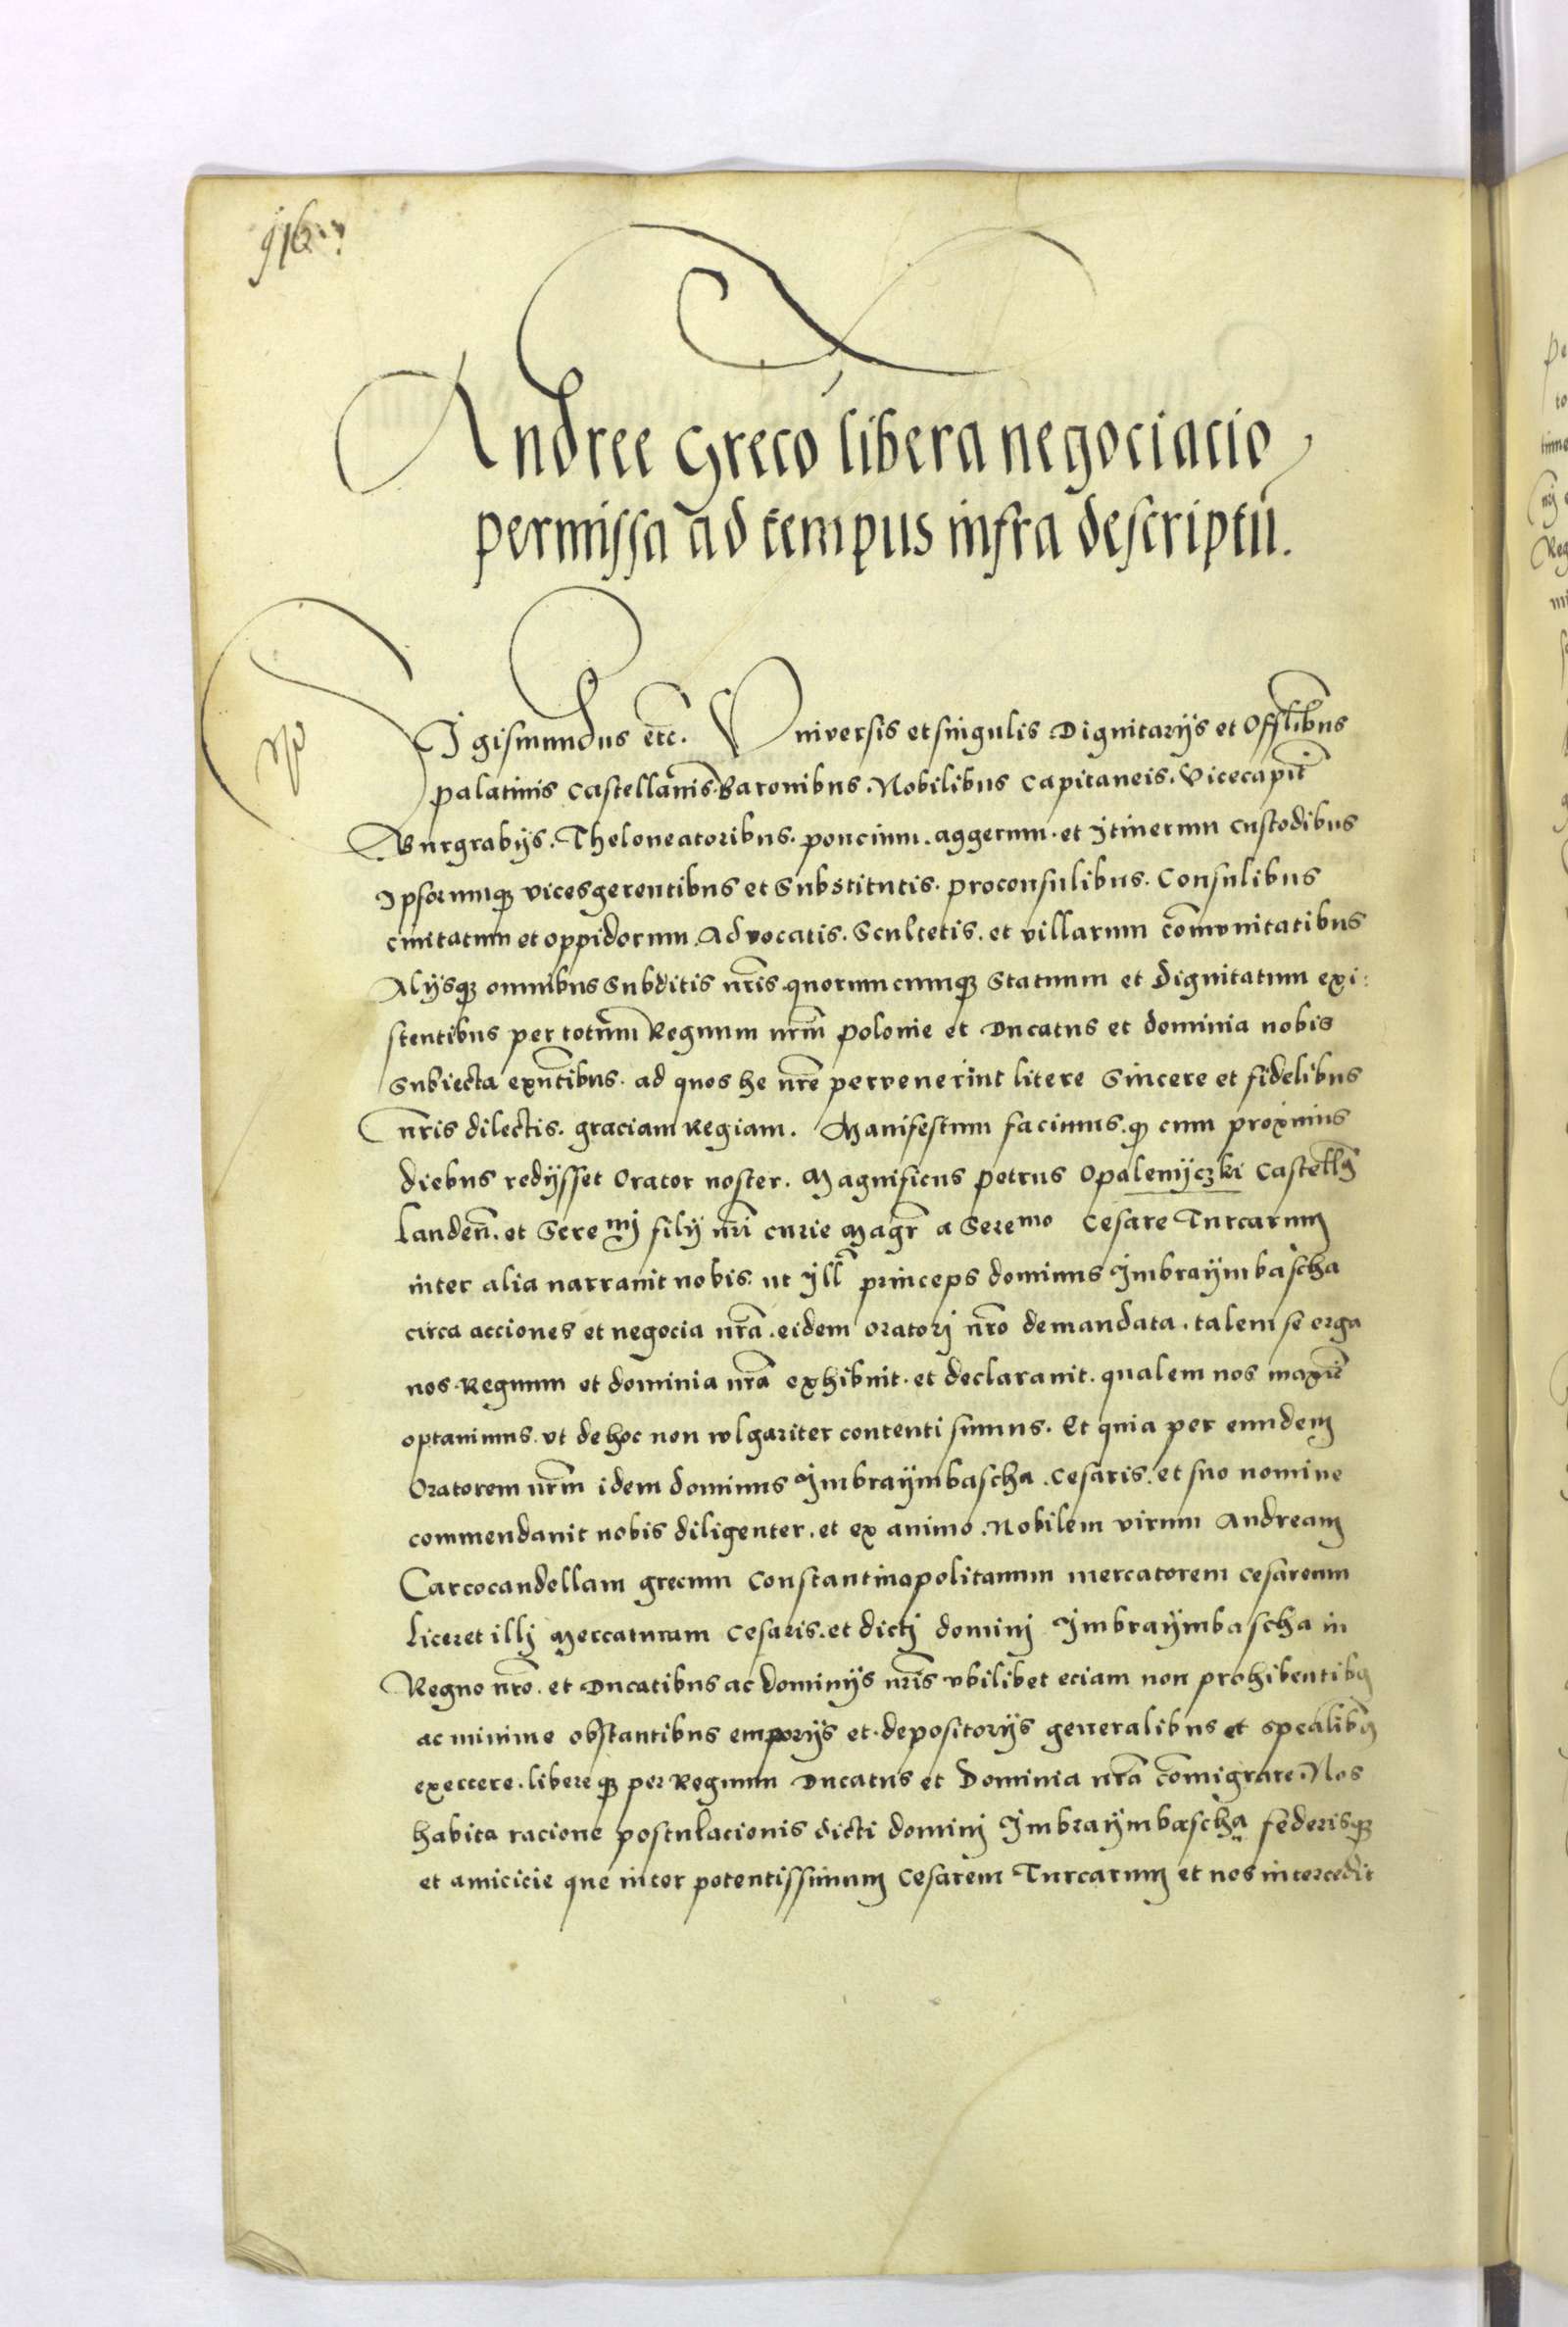 916
Andree Greco libera negociacio
permissa ad tempus infra descriptū.
Sigismundus etc̄. Vniversis et singulis Dignitarijs et Offſlibus
palatinis castellanis. Baronibus. Nobilibus capitaneis. Vicecapit̄
Burgrabijs. Theloneatoribus. poncium. aggerum. et Itinerum custodibus
Ipsorumqꝫ vicesgerentibus et Substitutis. proconsulibus. Consulibus
civitatum et oppidorum. Advocatis. Scultetis. et villarum com̄vnitatibus
Alijsqꝫ omnibus Subditis nr̄is quorumcumqꝫ Statuum et dignitatum exi:
stentibus per totum Regnum nr̄m polonie et Ducatus et dominia nobis
Subiecta exn̄tibus. ad quos he nr̄e pervenerint litere Sincere et fidelibus
nr̄is dilectis. graciam Regiam. Manifestum facimus. qꝫ cum proximis
diebus redijsset Orator noster. Magnificus petrus Opalenijcʒki Castellꝫ
Landen̄. et Sere mj filij nr̄i curie Magr̄ a Sere mo Cesare Turcarum
inter alia narravit nobis. ut Ill̄ princeps dominus Imbraijmbascha
circa acciones et negocia nr̄a. eidem oratorj nr̄o demandata. talem se erga
nos. Regnum et dominia nr̄a exhibuit. et declaravit. qualem nos maxīe
optavimus. vt de hoc non wlgariter contenti sumus. Et quia per eundem
Oratorem nr̄m idem dominus Imbraijmbascha. Cesaris. et suo nomine
commendavit nobis diligenter. et ex animo. Nobilem virum Andream
Carcocandellam grecum Constantinopolitanum mercatorem cesareum
liceret illj Mercaturam Cesaris. et dictj dominj Imbraijmbascha in
Regno nr̄o. et Ducatibus ac dominijs nr̄is vbilibet eciam non prohibentibꝫ
ac minime obstantibus emporijs et. depositorijs generalibus et spealibꝫ
exercere. libereqꝫ per Regnum Ducatus et Dominia nr̄a com̄igrare. Nos
habita racione postulacionis dicti dominj Imbraijmbascha federisqꝫ
et amicicie que inter potentissimum Cesarem Turcarum et nos intercedit